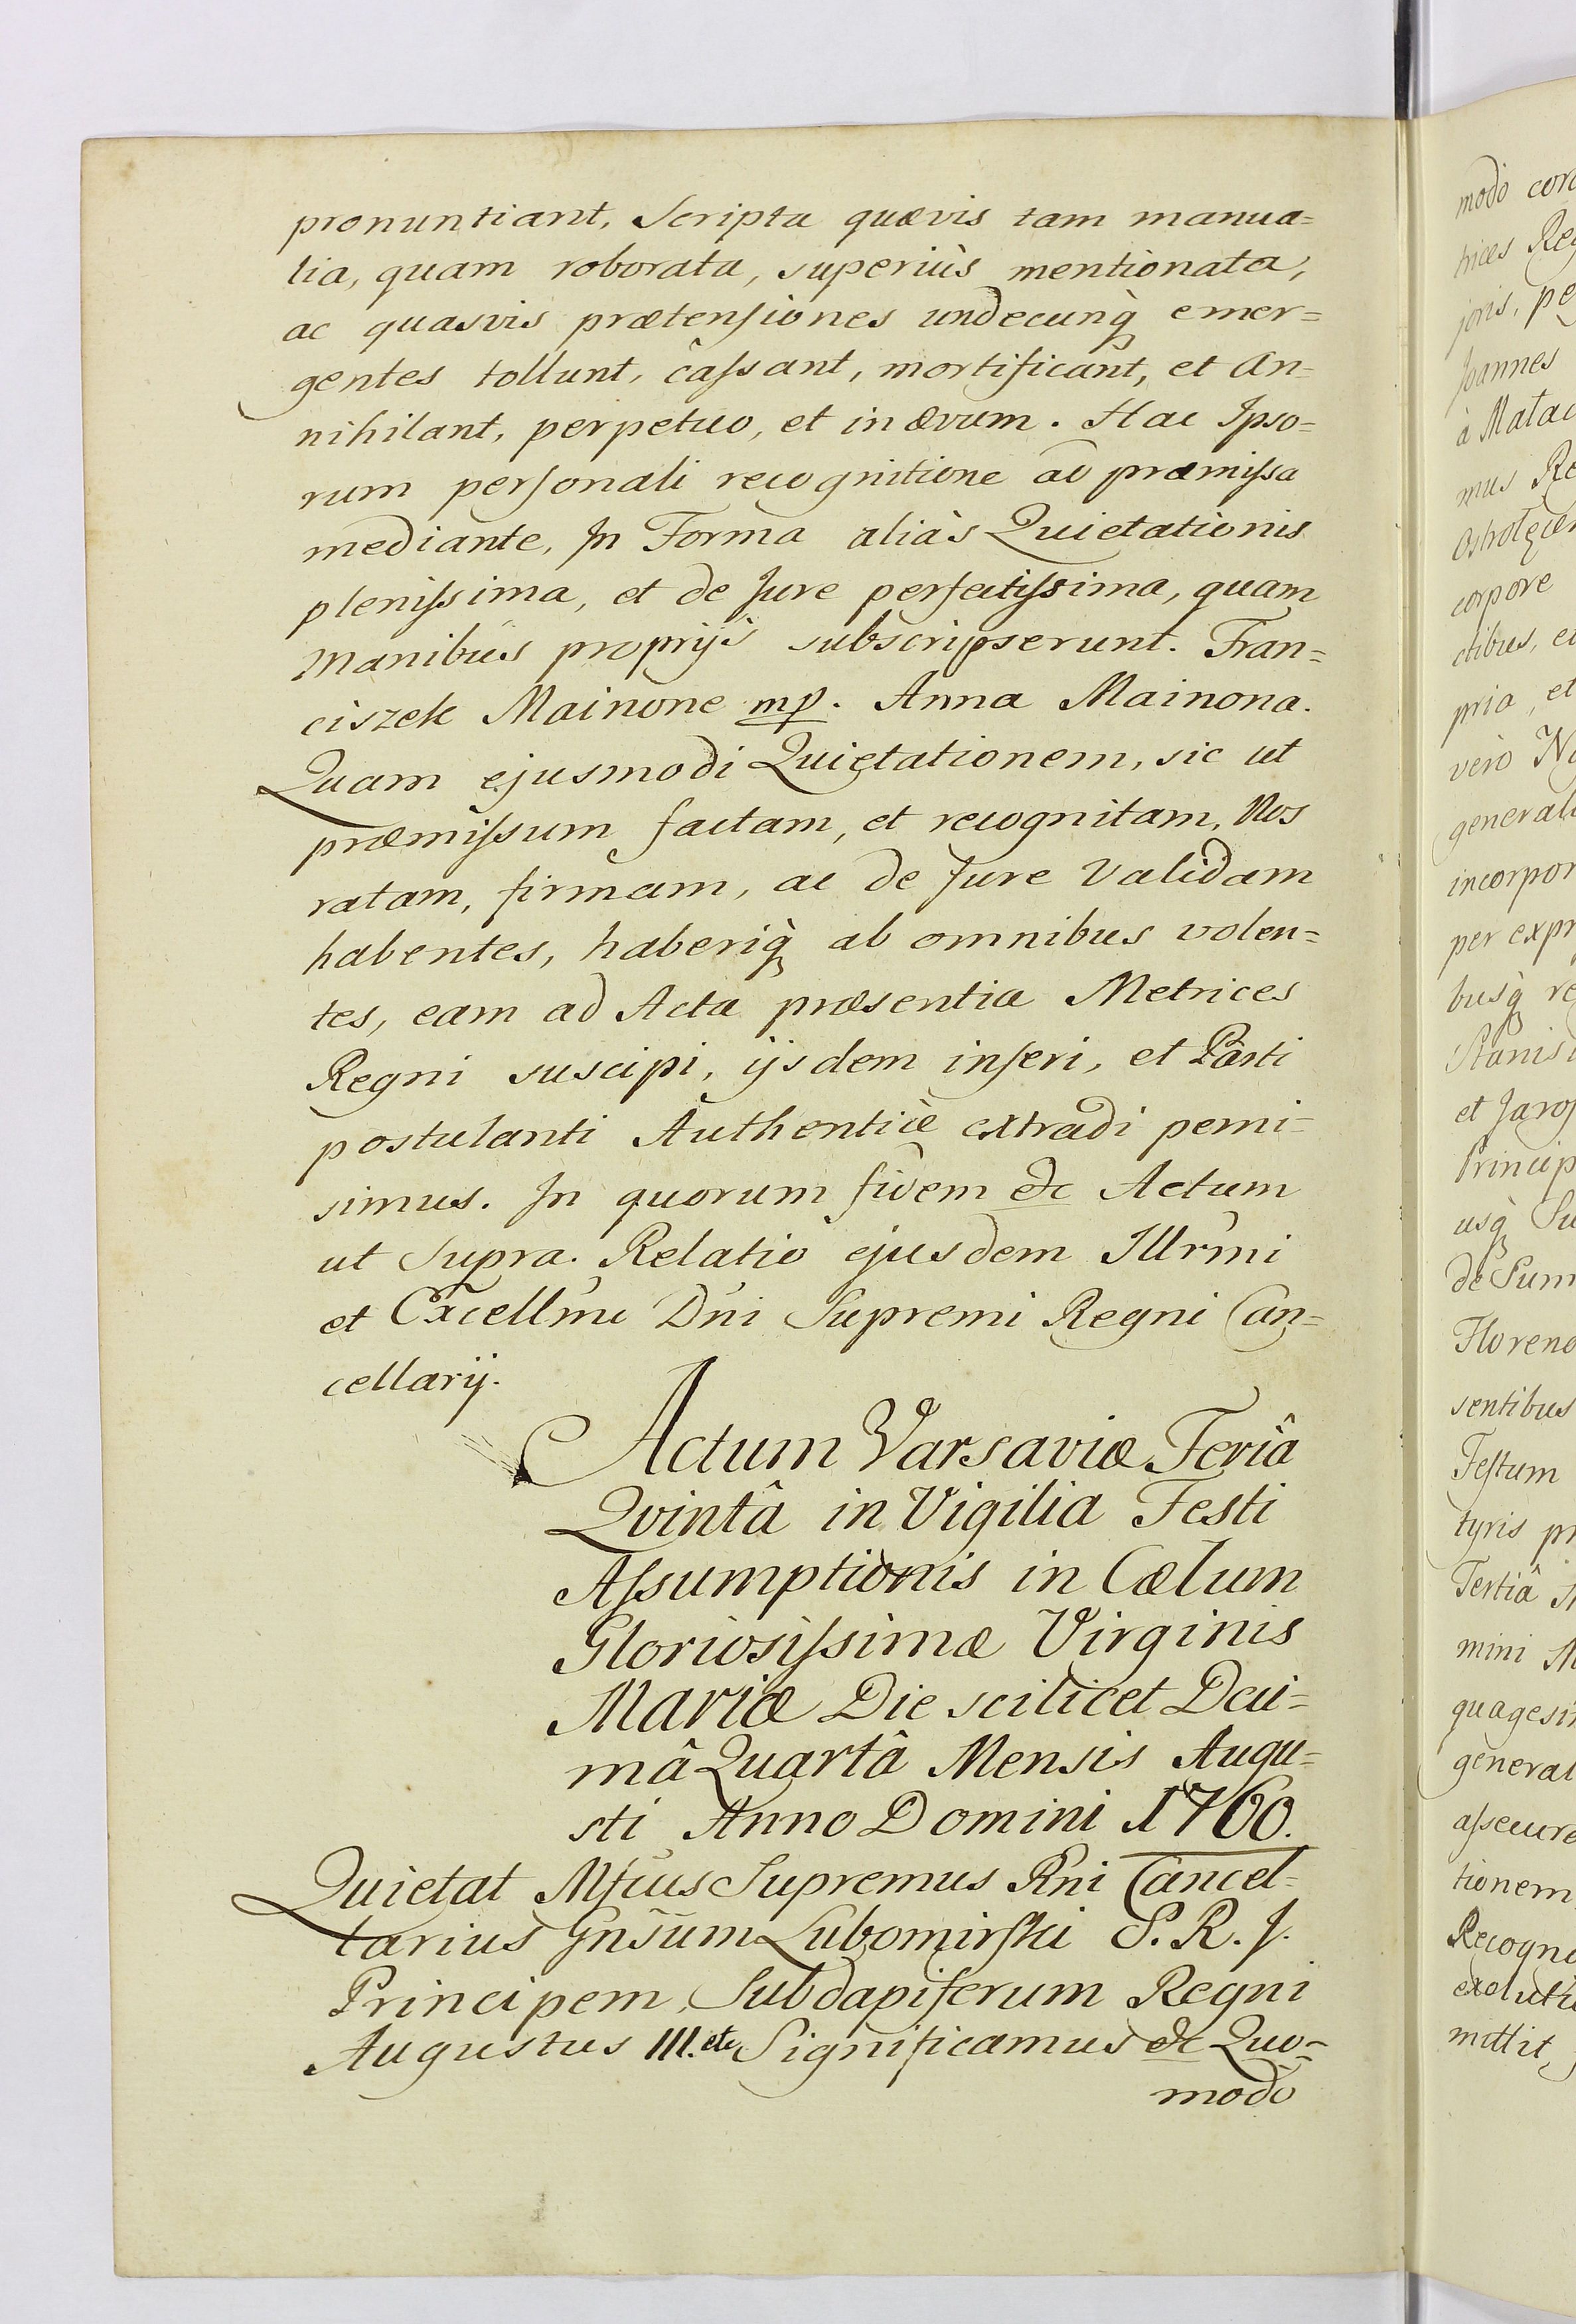 pronuntiant, Scripta quævis tam manua=
lia, quam roborata, superiùs mentionata,
ac quasvis prætensiones undecunq̀ emer=
gentes tollunt, cassant, mortificant, et an=
nihilant, perpetuo, et in ævum. Hac Ipso=
rum personali recognitione ad præmissa
mediante, In Forma aliàs Quietationis
plenissima, et de Jure perfectissima, quam
Manibus proprijs subscripserunt. Fran=
ciszek Mainone mp. Anna Mainona.
Quam ejusmodi Quietationem, sic ut
præmissum factam, et recognitam, Nos
ratam, firmam, ac de Jure validam
habentes, haberiq̀ ab omnibus volen=
tes, eam ad Acta præsentia Metrices
Regni suscipi, ijsdem inseri, et Parti
postulanti Authenticè extradi permi=
simus. In quorum fidem &c Actum
ut Supra. Relatio ejusdem Illrmi
et Excellmi Dni Supremi Regni Can=
cellarij.
Actum Varsaviæ Feriâ
Qvintâ in Vigilia Festi
Assumptionis in Cælum
Gloriosissimæ Virginis
Mariæ Die scilicet Deci=
mâ Quartâ Mensis Augu=
sti Anno Domini 1760.
Quietat Mfcus Supremus Rni Cancel=
larius Gnsum Lubomirski S. R. J.
Principem, Subdapiferum Regni
Augustus III. etc Significamus &c Quo=
modo
modò cor
trices Reg
joris, pe
Joannes
à Matac
mus Re
corpore
ctibus, et
pria, et
verò No
generali
incorpor
per expr
busq̀ re
Stanis
et Jaros
Princip
usq̀ Su
de Sum
Floreno
sentibus
Festum
tyris pr
Tertiâ
mini M
quagesi
general
assecur
tionem
Recogno
mittit,